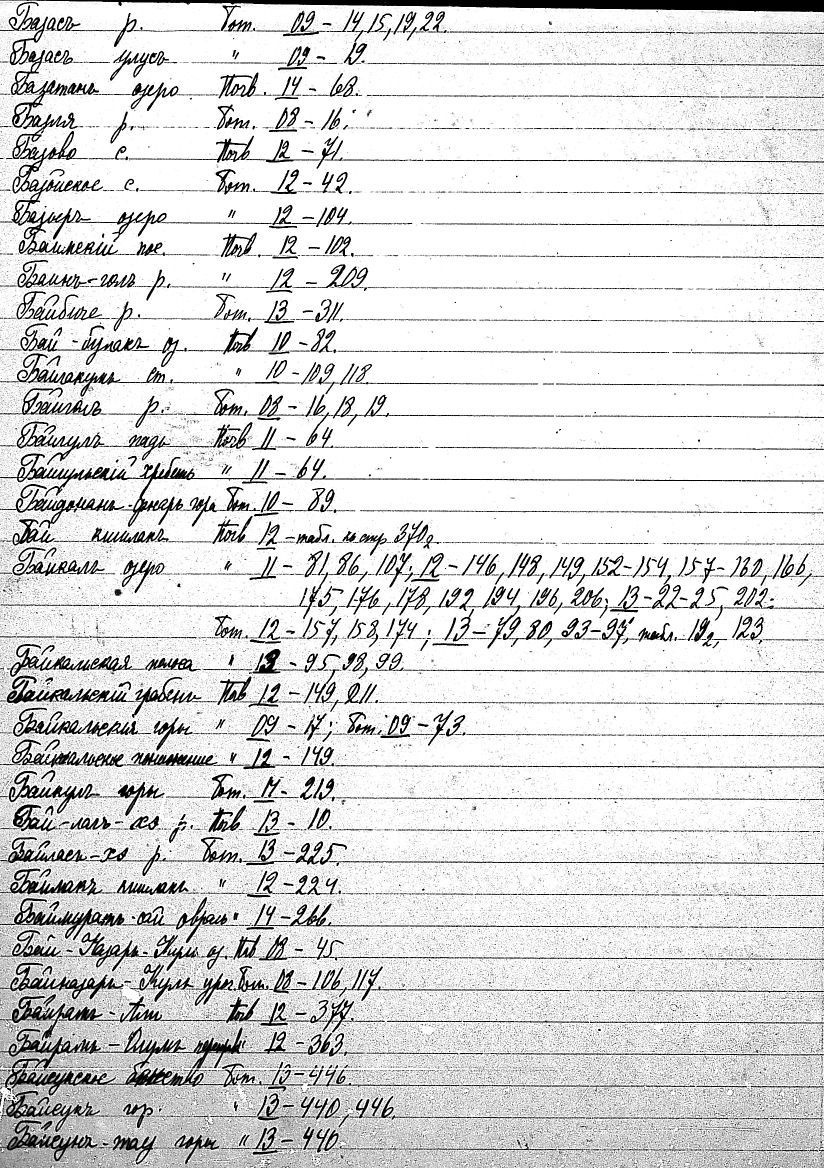 Базасъ р. Бот. 09 – 14, 15, 19, 22.
Базасъ улусъ " 09 – 19.
Базатанъ озеро Почв. 14 – 68.
Базля р. Бот. 08 – 16.
Базово с. Почв 12 – 71.
Базойское с. Бот. 12 – 42.
Базыръ озеро " 12 – 104.
Баимскій пос. Почв. 12 – 102.
Баинъ-голъ р. " 12 – 209.
Байбиче р. Бот. 13 – 311.
Бай-булакъ оз. Почв 10 – 82.
Байгакумъ ст. " 10 – 109, 118.
Байголъ р. Бот. 08 – 16, 18, 19.
Байгулъ падь Почв 11 – 64
Байгульскій хребетъ " 11 – 64.
гора Бот. 10 – 89.
Бай кишлакъ Почв 12 – табл. къ стр. 370₂
Байкалъ озеро " 11 – 81, 86, 107; 12 – 146, 148, 149, 152-154, 157-160, 166,
175, 176, 178, 192, 194, 196, 206; 13 – 22-25, 202;
Бот. 12 – 157, 158, 174; 13 – 79, 80, 93-97, табл. 19₂, 123.
Байкальская " 13 – 95, 98, 99.
Байкальскій грабенъ Почв 12 – 149, 211.
Байкальскія горы " 09 – 17; Бот. 09 – 73.
Байкальское понижение " 12 – 149.
Байкулъ горы Бот. 14 – 219.
Бай-лагъ-хэ р. Почв 13 – 10.
Байласъ-хэ р. Бот. 13 – 225.
Байлакъ кишлакъ " 12 – 224.
Баймуратъ-сай оврагъ " 14 – 266.
Бай-Назаръ-Куль оз. Почв 08 – 45.
Байназаръ-Куль уроч. Бот. 08 – 106, 117.
Байрамъ-Али Почв 12 – 377.
Байрамъ-Олумъ 12 – 363.
Байсунское бекство Бот. 13 – 446.
Байсунъ гор. " 13 – 440, 446.
Байсунъ-тау горы " 13 – 440